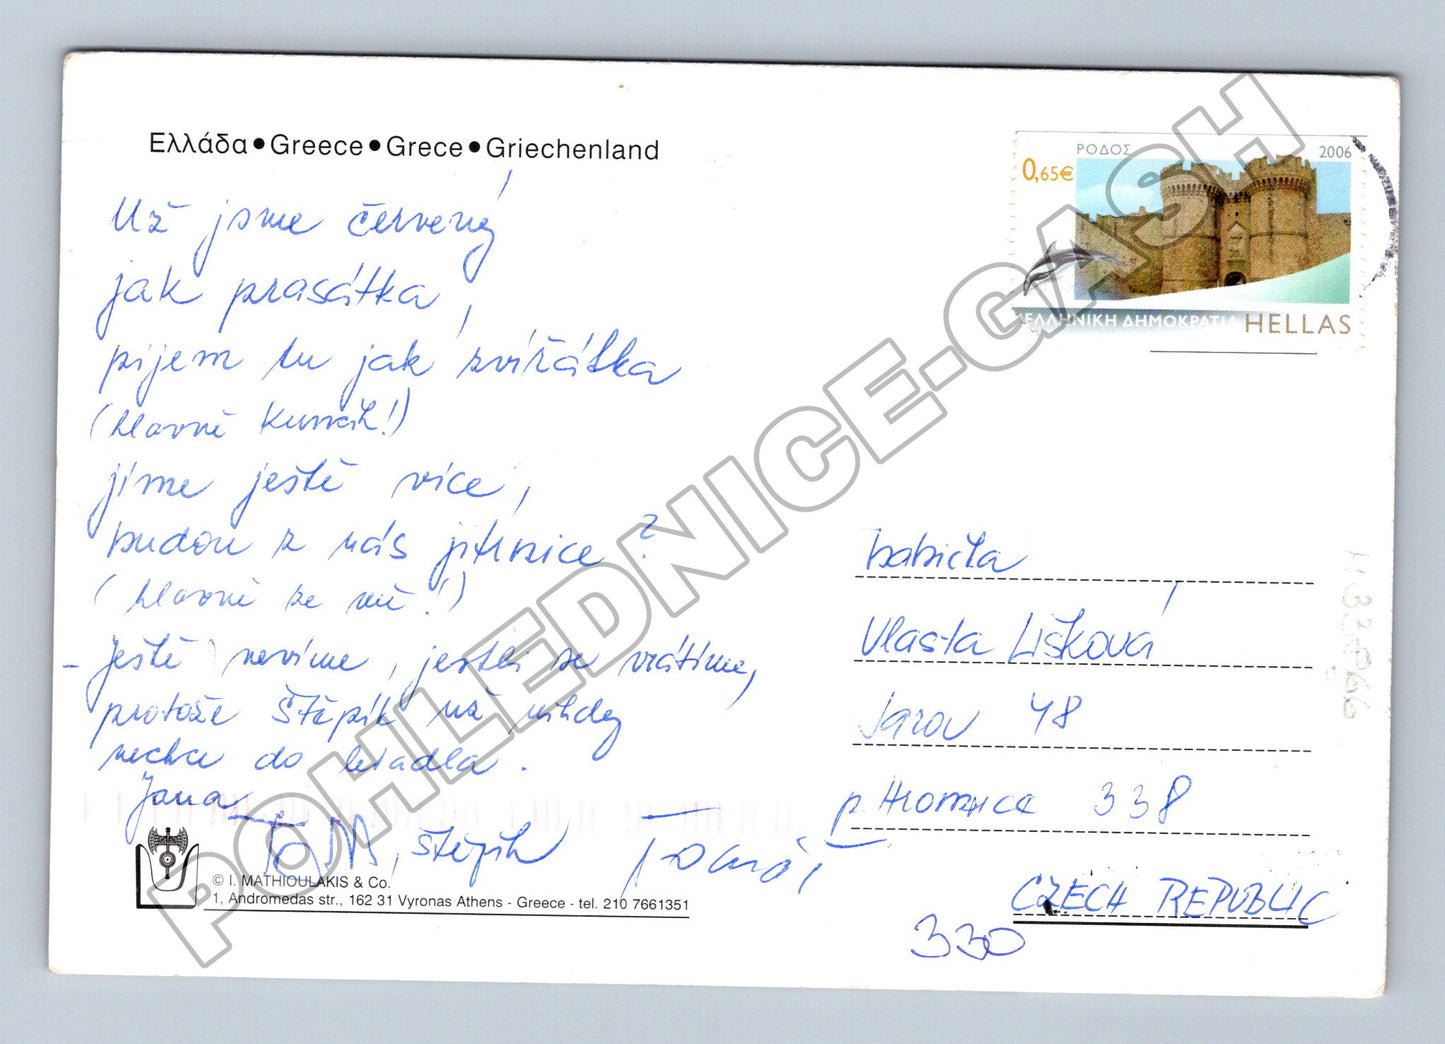 Ελλάδα • Greece • Grece • Griechenland
Už jsme červený
jak prasátka,
pijem tu jak zvířátka
(hlavně Kubrak!)
jíme ještě více,
budou z nás jitrnice?
(hlavně ze mě!)
- Ještě nevíme, jestli se vrátíme,
protože Štěpík už nikdy
nechce do letadla.
Jana
TOM, štěpík Tomáš
© I. MATHIOULAKIS & Co.
1, Andromedas str., 162 31 Vyronas Athens - Greece - tel. 210 7661351
ΡΟΔΟΣ 2006
0,65€
ΕΛΛΗΝΙΚΗ ΔΗΜΟΚΡΑΤΙΑ HELLAS
babička
Vlasta Lišková
Jarov 48
p. Hromnice 338
CZECH REPUBLIC
330
POHLEDNICE-GASH